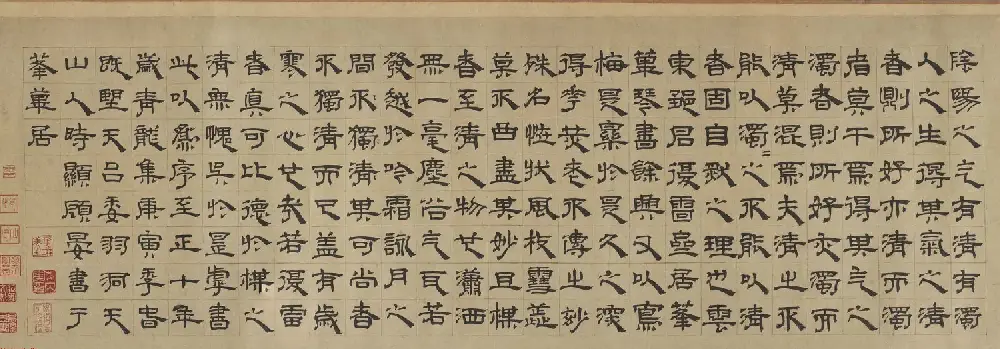 陰陽之气有清有濁
人之生得其氣之清
者則所好亦清而濁
者莫干焉得其气之
濁者則所好亦濁而
清莫混焉夫清之不
能以濁=之不能以清
者固自然之理也雲
東鄒君復雷居蓬
蓽琴書餘興又以寫
梅是於是久之深
得華光老不傳之妙
殊名恠狀風枝雪蕊
莫不曲盡其妙且楳
香至清之物也瀟洒
無一毫塵俗气耳若
發越於吟霜詠月之
間不獨清其可尚者
不獨清而已盖有歲
寒之心也哉若復雷
者真可比德於楳之
清無愧矣於是虖書
此以為序至正十年
歲青龍集庚寅季春
既望天台委羽洞天
山人時顯顧晏書于
蓬蓽居